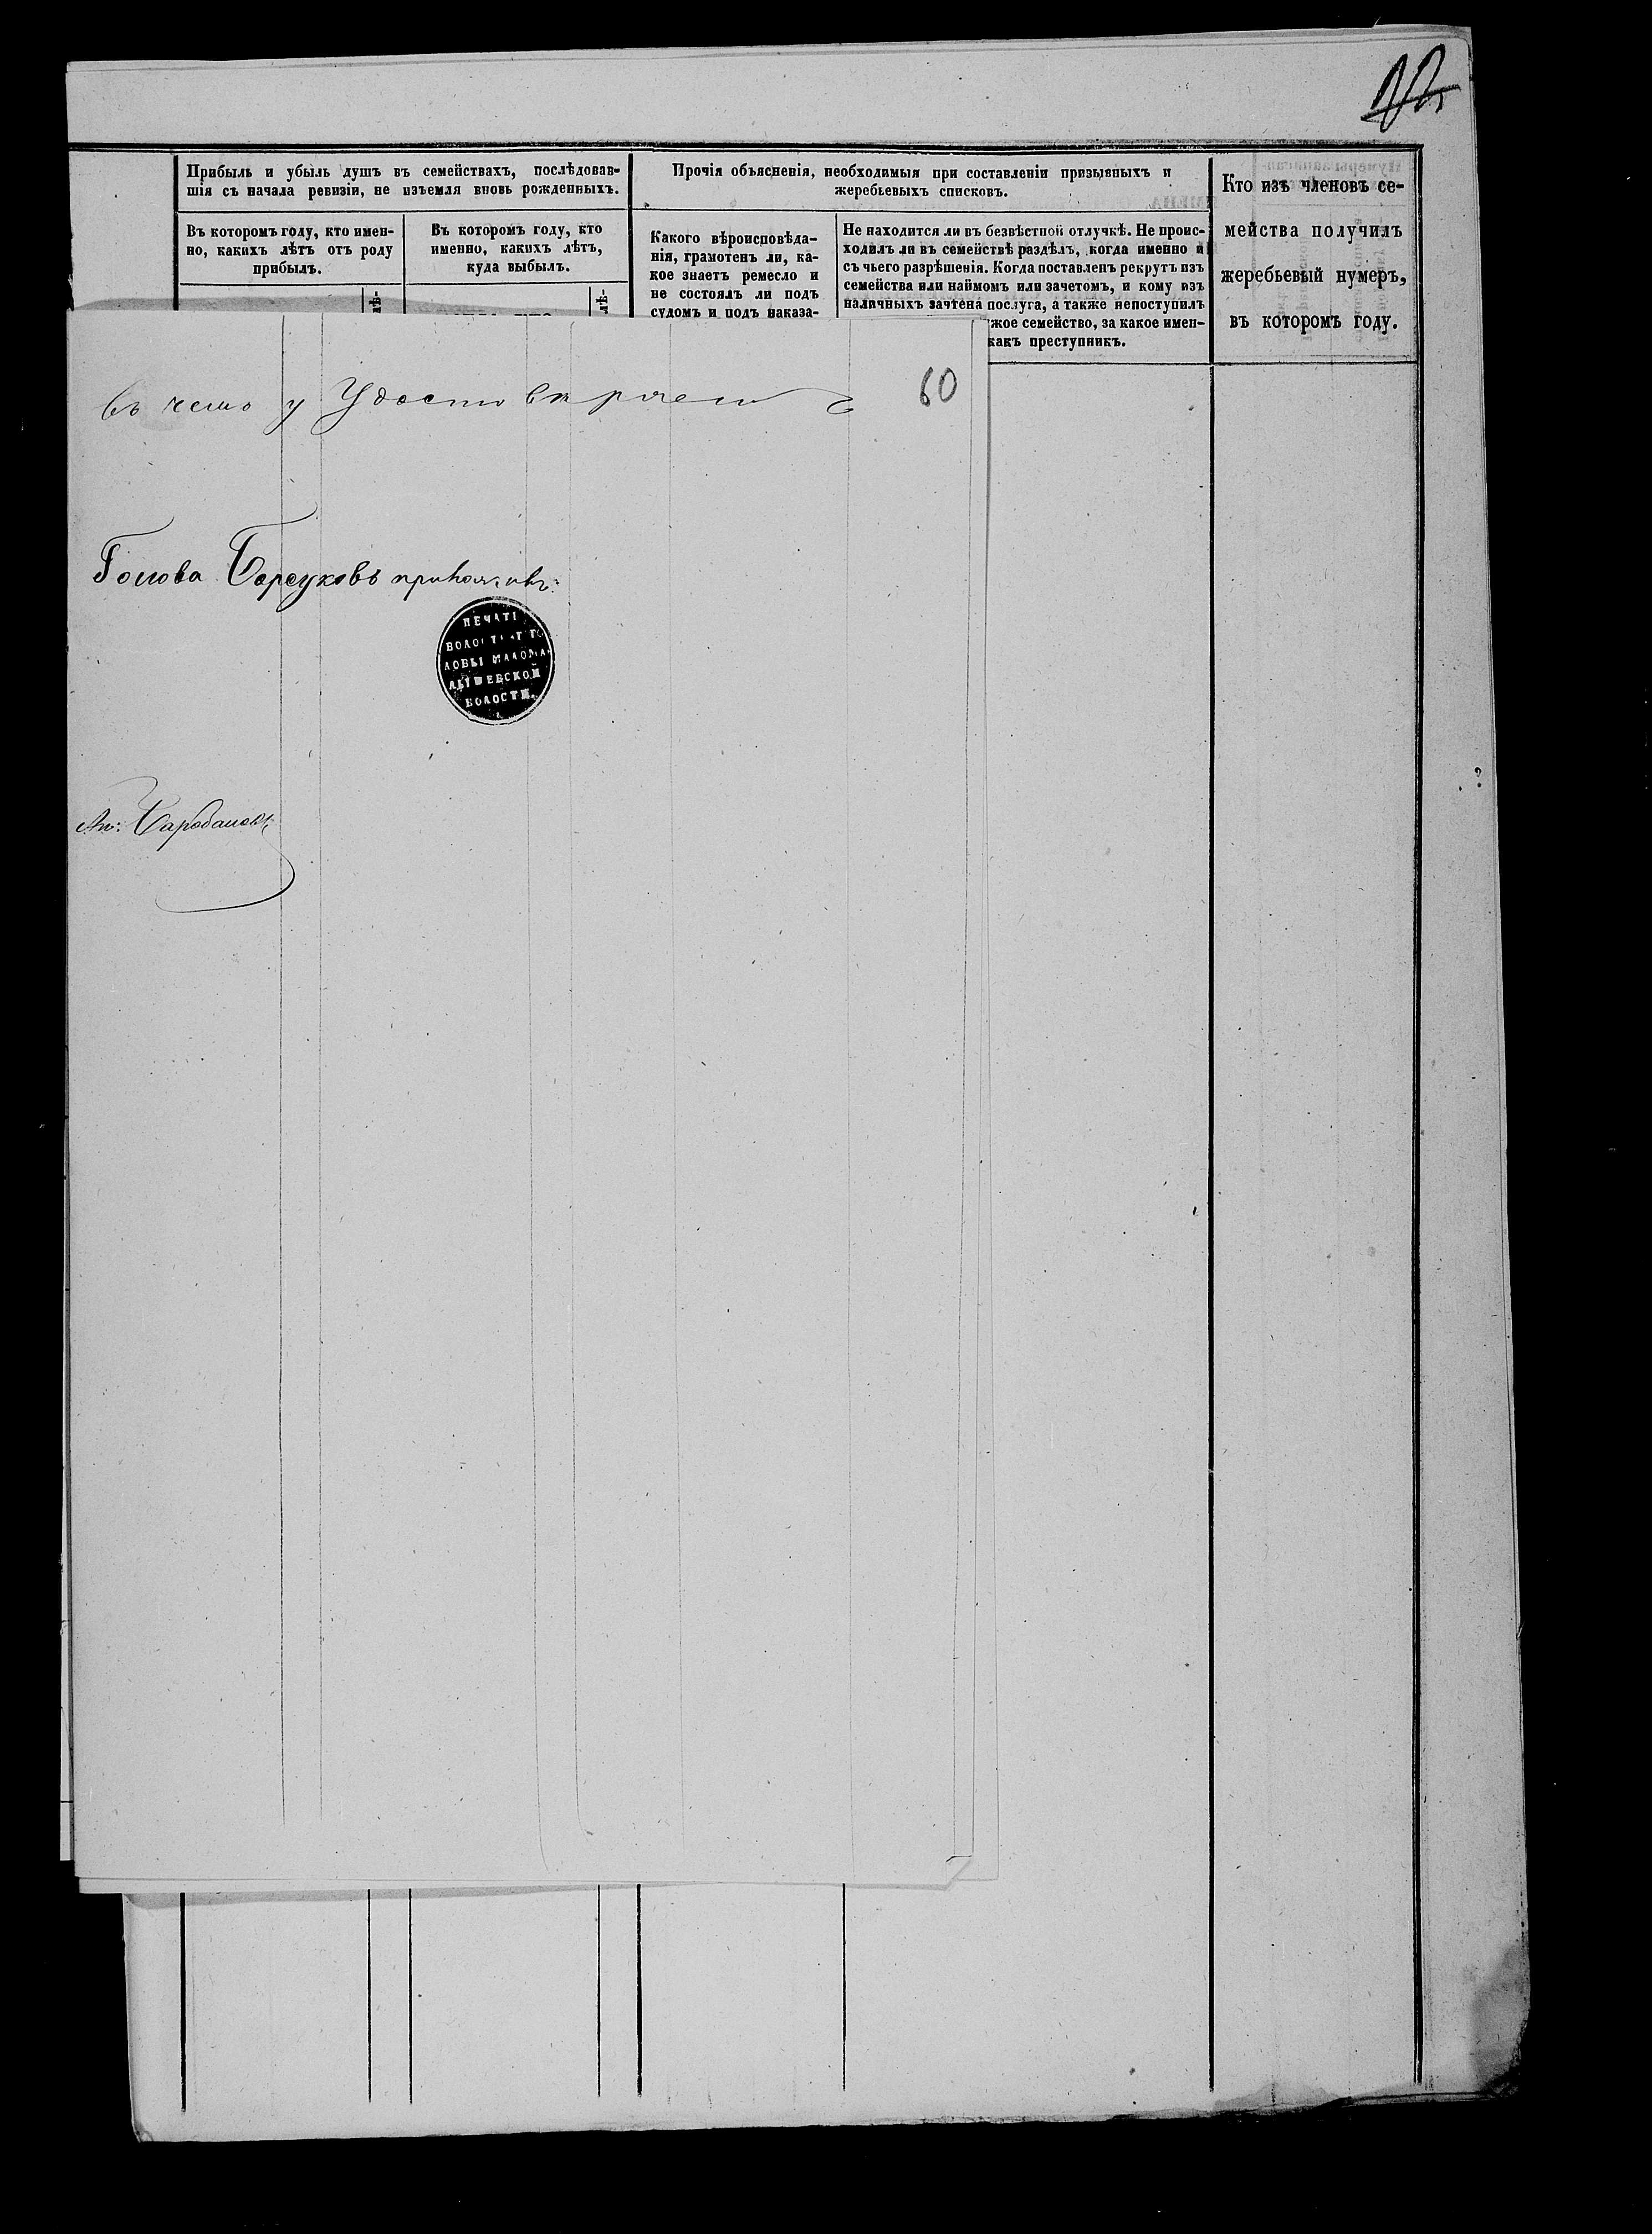 Прибыль и убыль душъ въ семействахъ, послѣдовав-
шія съ начала ревизіи, не изъемля вновь рожденныхъ.
Въ которомъ году, кто имен-
но, какихъ лѣтъ отъ роду
прибылъ.
Въ которомъ году, кто
именно, какихъ лѣтъ,
куда выбылъ.
Прочія объясненія, необходимыя при составленіи призывныхъ и
жеребьевыхъ списковъ.
Какого вѣроисповѣда-
нія, грамотенъ ли, ка-
кое знаетъ ремесло и
не состоялъ ли подъ
судомъ и подъ наказа-
Не находится ли въ безвѣстной отлучкѣ. Не проис-
ходилъ ли въ семействѣ раздѣлъ, когда именно и
съ чьего разрѣшенія. Когда поставленъ рекрутъ изъ
семейства или наймомъ или зачетомъ, и кому изъ
наличныхъ зачтена послуга, а также непоступилъ
жое семейство, за какое имен-
какъ преступникъ.
Кто изъ членовъ се-
мейства получилъ
жеребьевый нумеръ,
въ которомъ году.
60
въ чемъ и Удостовѣряемъ
Голова Барсуковъ приложилъ
ПЕЧАТЬ
ВОЛОСТНАГО ГО
ЛОВЫ МАЛОМА
ЛЫШЕВСКОЙ
ВОЛОСТИ.